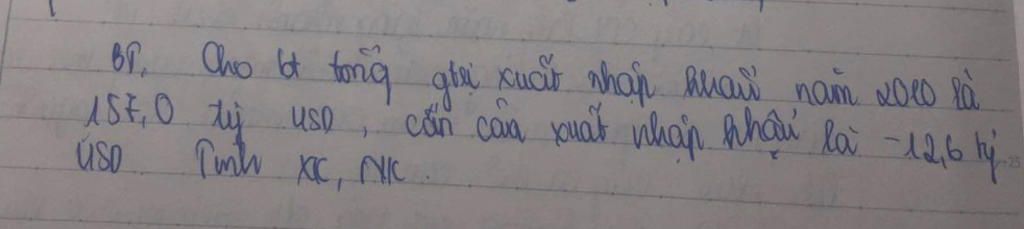 BT. Cho bt tổng gtrị xuất nhập khẩu năm 2010 là
157,0 tỷ USD, cán cân xuất nhập khẩu là -12,6 tỷ
USD Tính XK, NK.